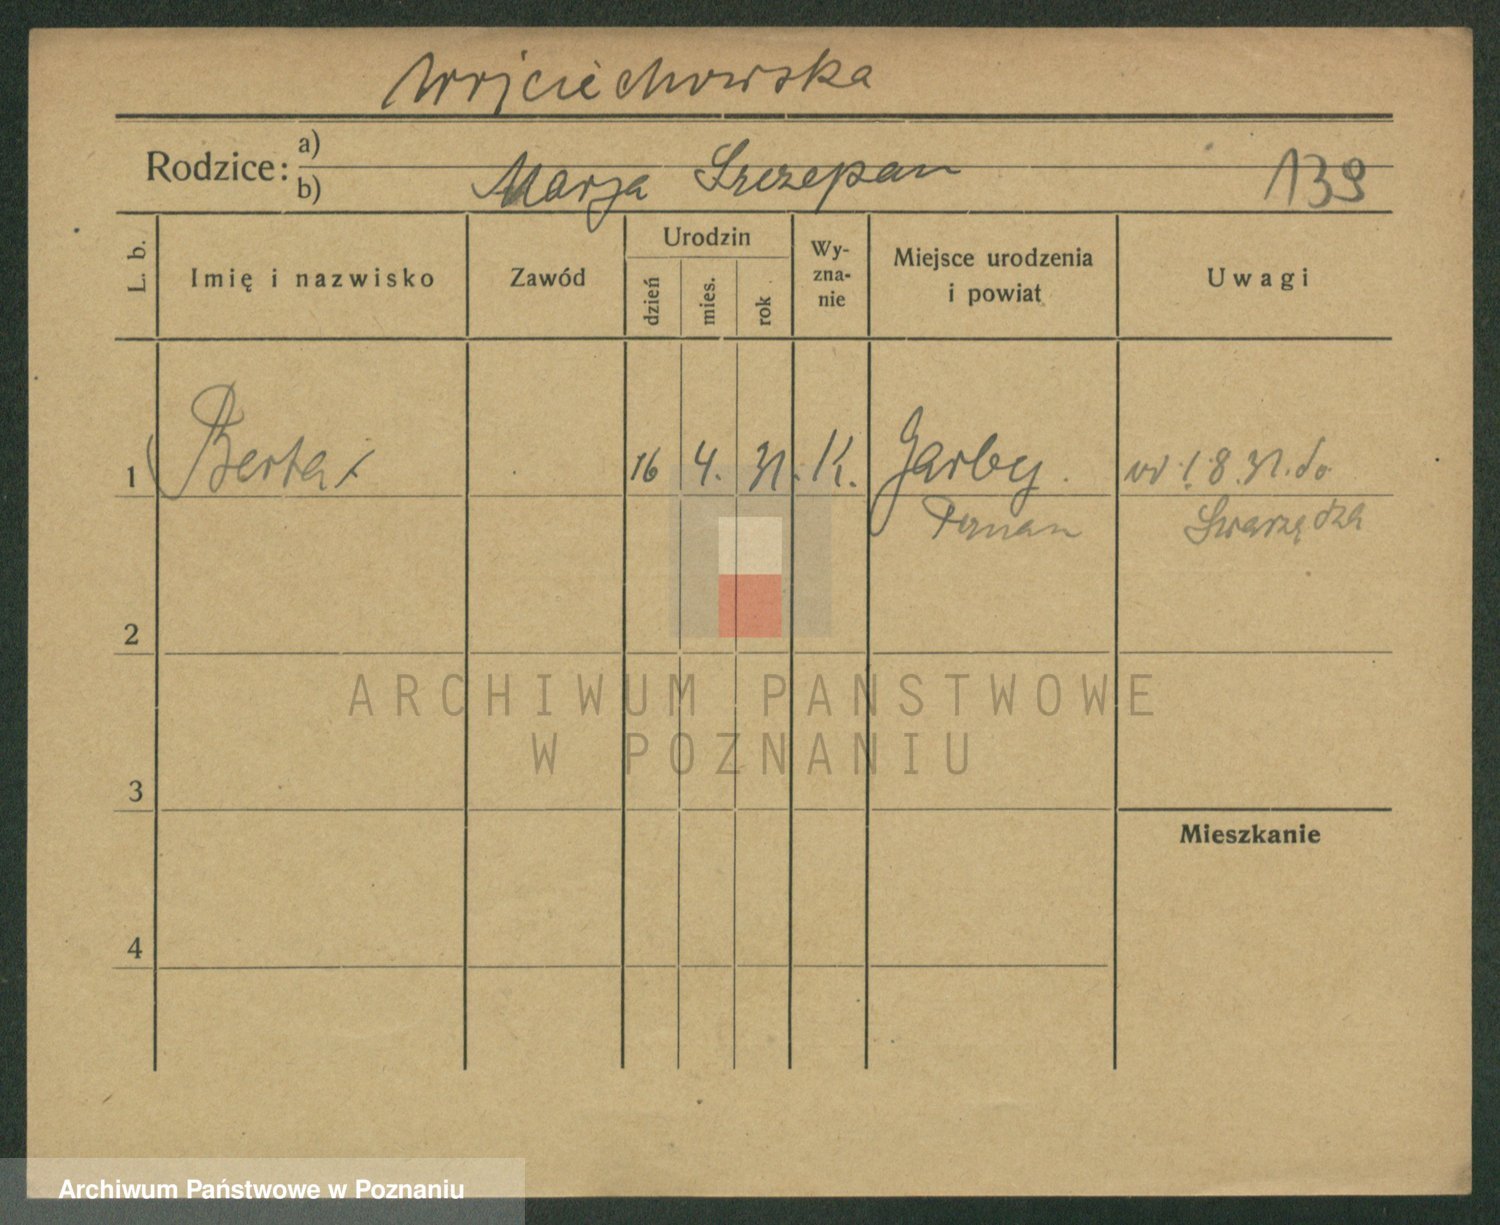 Wojciechowska
Rodzice: a)
b) Marja Szczepan 139
L. b. Imię i nazwisko Zawód Urodzin dzień mies. rok Wy-zna-nie Miejsce urodzenia i powiat Uwagi
1 Berta 16 4. 31. K. Garby. od 1.8.31. do
Poznań Swarzędza
2
3
Mieszkanie
4
ARCHIWUM PAŃSTWOWE
W POZNANIU
Archiwum Państwowe w Poznaniu